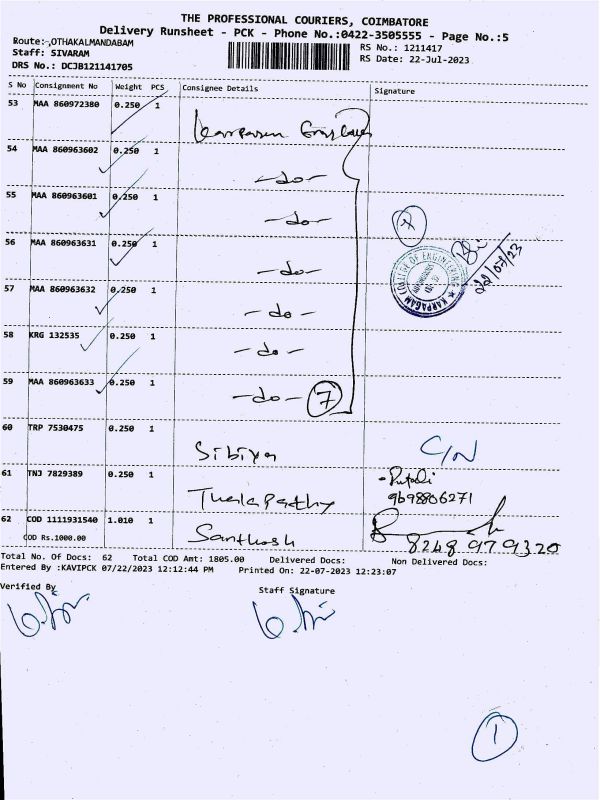 THE PROFESSIONAL COURIERS, COIMBATORE
Delivery Runsheet - PCK - Phone No.:0422-3505555 - Page No.:5
Route:-,OTHAKALMANDABAM
Staff: SIVARAM
DRS No.: DCJB121141705
RS No.: 1211417
RS Date: 22-Jul-2023
S No Consignment No Weight PCS Consignee Details Signature
53 MAA 860972380 0.250 1
54 MAA 860963602 0.250 1 -do-
55 MAA 860963601 0.250 1 -do-
56 MAA 860963631 0.250 1 -do-
57 MAA 860963632 0.250 1 -do-
58 KRG 132535 0.250 1 -do-
59 MAA 860963633 0.250 1 -do- 7
7
KARPAGAM COLLEGE OF ENGINEERING
22/07/23
60 TRP 7530475 0.250 1 Sibiya C/N
61 TNJ 7829389 0.250 1 Thalapathy
9698806271
62 COD 1111931540 1.010 1 Santhosh
COD Rs.1000.00
8248 979320
Total No. Of Docs: 62 Total COD Amt: 1805.00 Delivered Docs: Non Delivered Docs:
Entered By :KAVIPCK 07/22/2023 12:12:44 PM Printed On: 22-07-2023 12:23:07
Verified By
Staff Signature
1